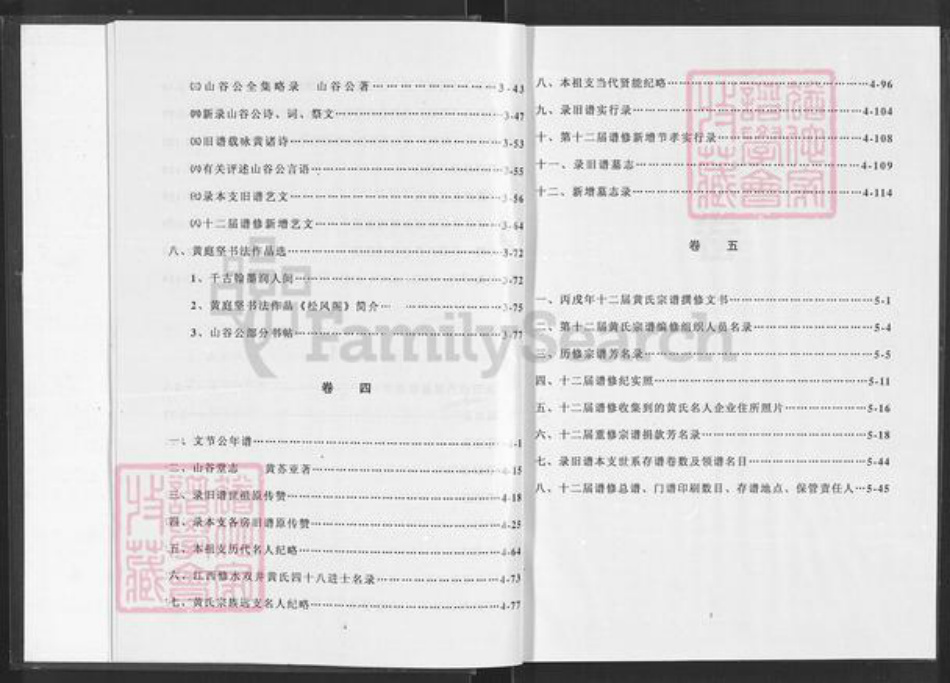 ㈢山谷公全集略录 山谷公著………………3-43
㈣新录山谷公诗、词、祭文………………3-47
㈤旧谱载咏黄诸诗………………3-53
㈥有关评述山谷公言语………………3-55
㈦录本支旧谱艺文………………3-56
㈧十二届谱修新增艺文………………3-64
八、黄庭坚书法作品选………………3-72
1、千古翰墨润人间………………3-72
2、黄庭坚书法作品《松风阁》简介………………3-75
3、山谷公部分书帖………………3-77
卷 四
一、文节公年谱………………4-1
二、山谷堂志 黄苏亚著………………4-15
三、录旧谱世祖原传赞………………4-18
四、录本支各房旧谱原传赞………………4-25
五、本祖支历代名人纪略………………4-64
六、江西修水双井黄氏四十八进士名录………………4-73
七、黄氏宗族远支名人纪略………………4-77
4
八、本祖支当代贤能纪略………………4-96
九、录旧谱实行录………………4-104
十、第十二届谱修新增节孝实行录………………4-108
十一、录旧谱墓志………………4-109
十二、新增墓志录………………4-114
卷 五
一、丙戌年十二届黄氏宗谱撰修文书………………5-1
二、第十二届黄氏宗谱编修组织人员名录………………5-4
三、历修宗谱芳名录………………5-5
四、十二届谱修纪实照………………5-11
五、十二届谱修收集到的黄氏名人企业住所照片………………5-16
六、十二届重修宗谱捐款芳名录………………5-18
七、录旧谱本支世系存谱卷数及领谱名目………………5-44
八、十二届谱修总谱、门谱印刷数目、存谱地点、保管责任人…5-45
FamilySearch